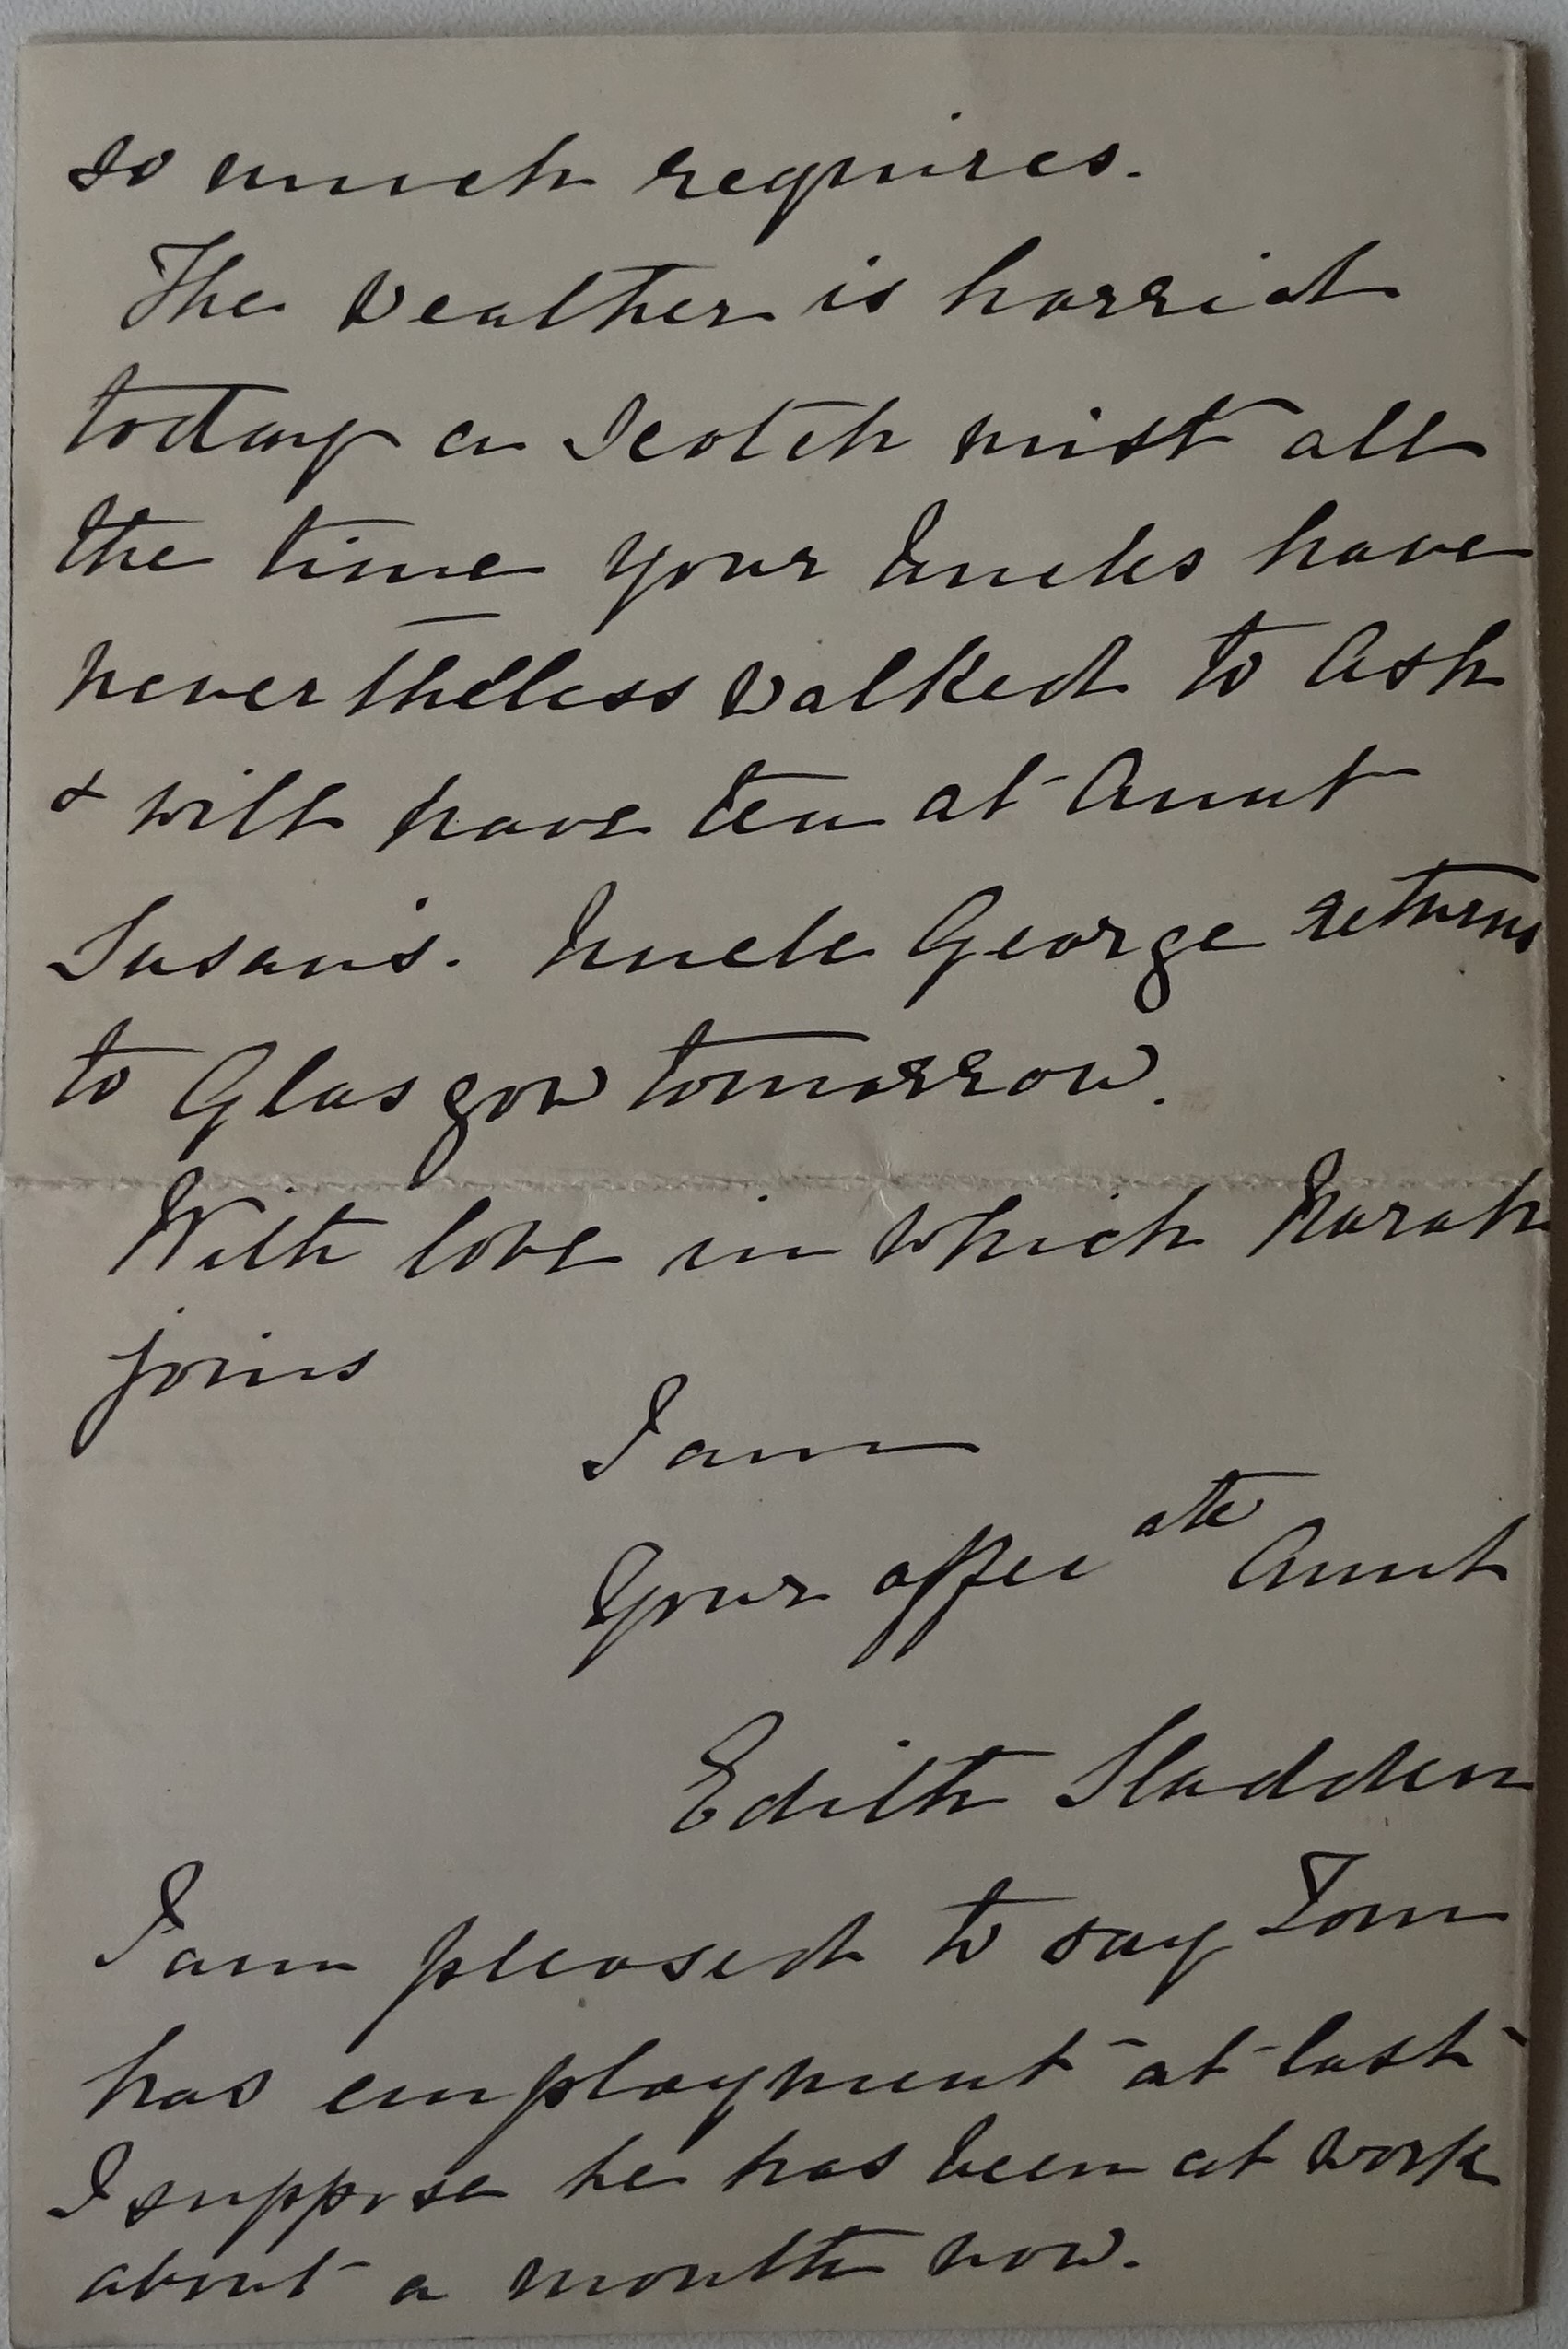 so much requires.
The weather is horrid
today a Scotch mist all
the time your Uncles have
nevertheless walked to Ash
& will have tea at Aunt
Susan's. Uncle George returns
to Glasgow tomorrow.
With love in which Norah
joins
I am
Your affecate Aunt
Edith Sladden
I am pleased to say Tom
has employment at last
I suppose he has been at work
about a month now.